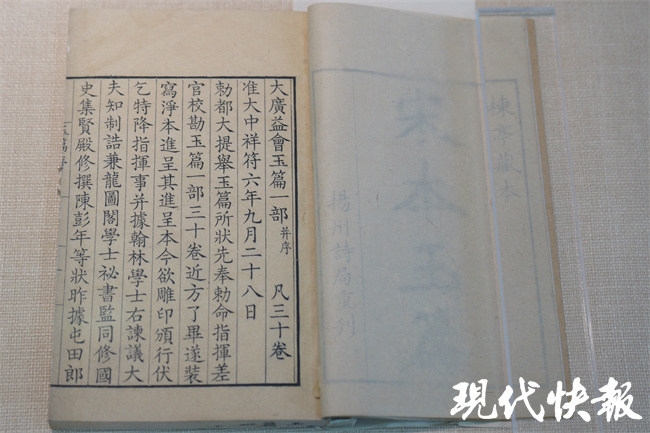 楝亭藏本
宋本玉篇
揚州詩局重刊
大廣益會玉篇一部 并序 凡三十卷
准大中祥符六年九月二十八日
勅都大提舉玉篇所狀先奉勅命指揮差
官校勘玉篇一部三十卷近方了畢遂裝
寫淨本進呈其進呈本今欲雕印頒行伏
乞特降指揮事并據翰林學士右諫議大
夫知制誥兼龍圖閣學士祕書監同修國
史集賢殿修撰陳彭年等狀昨據屯田郎
現代快報